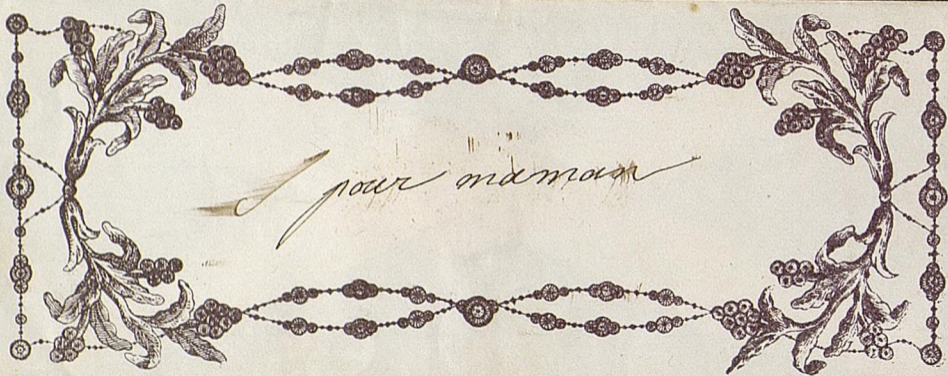 pour maman